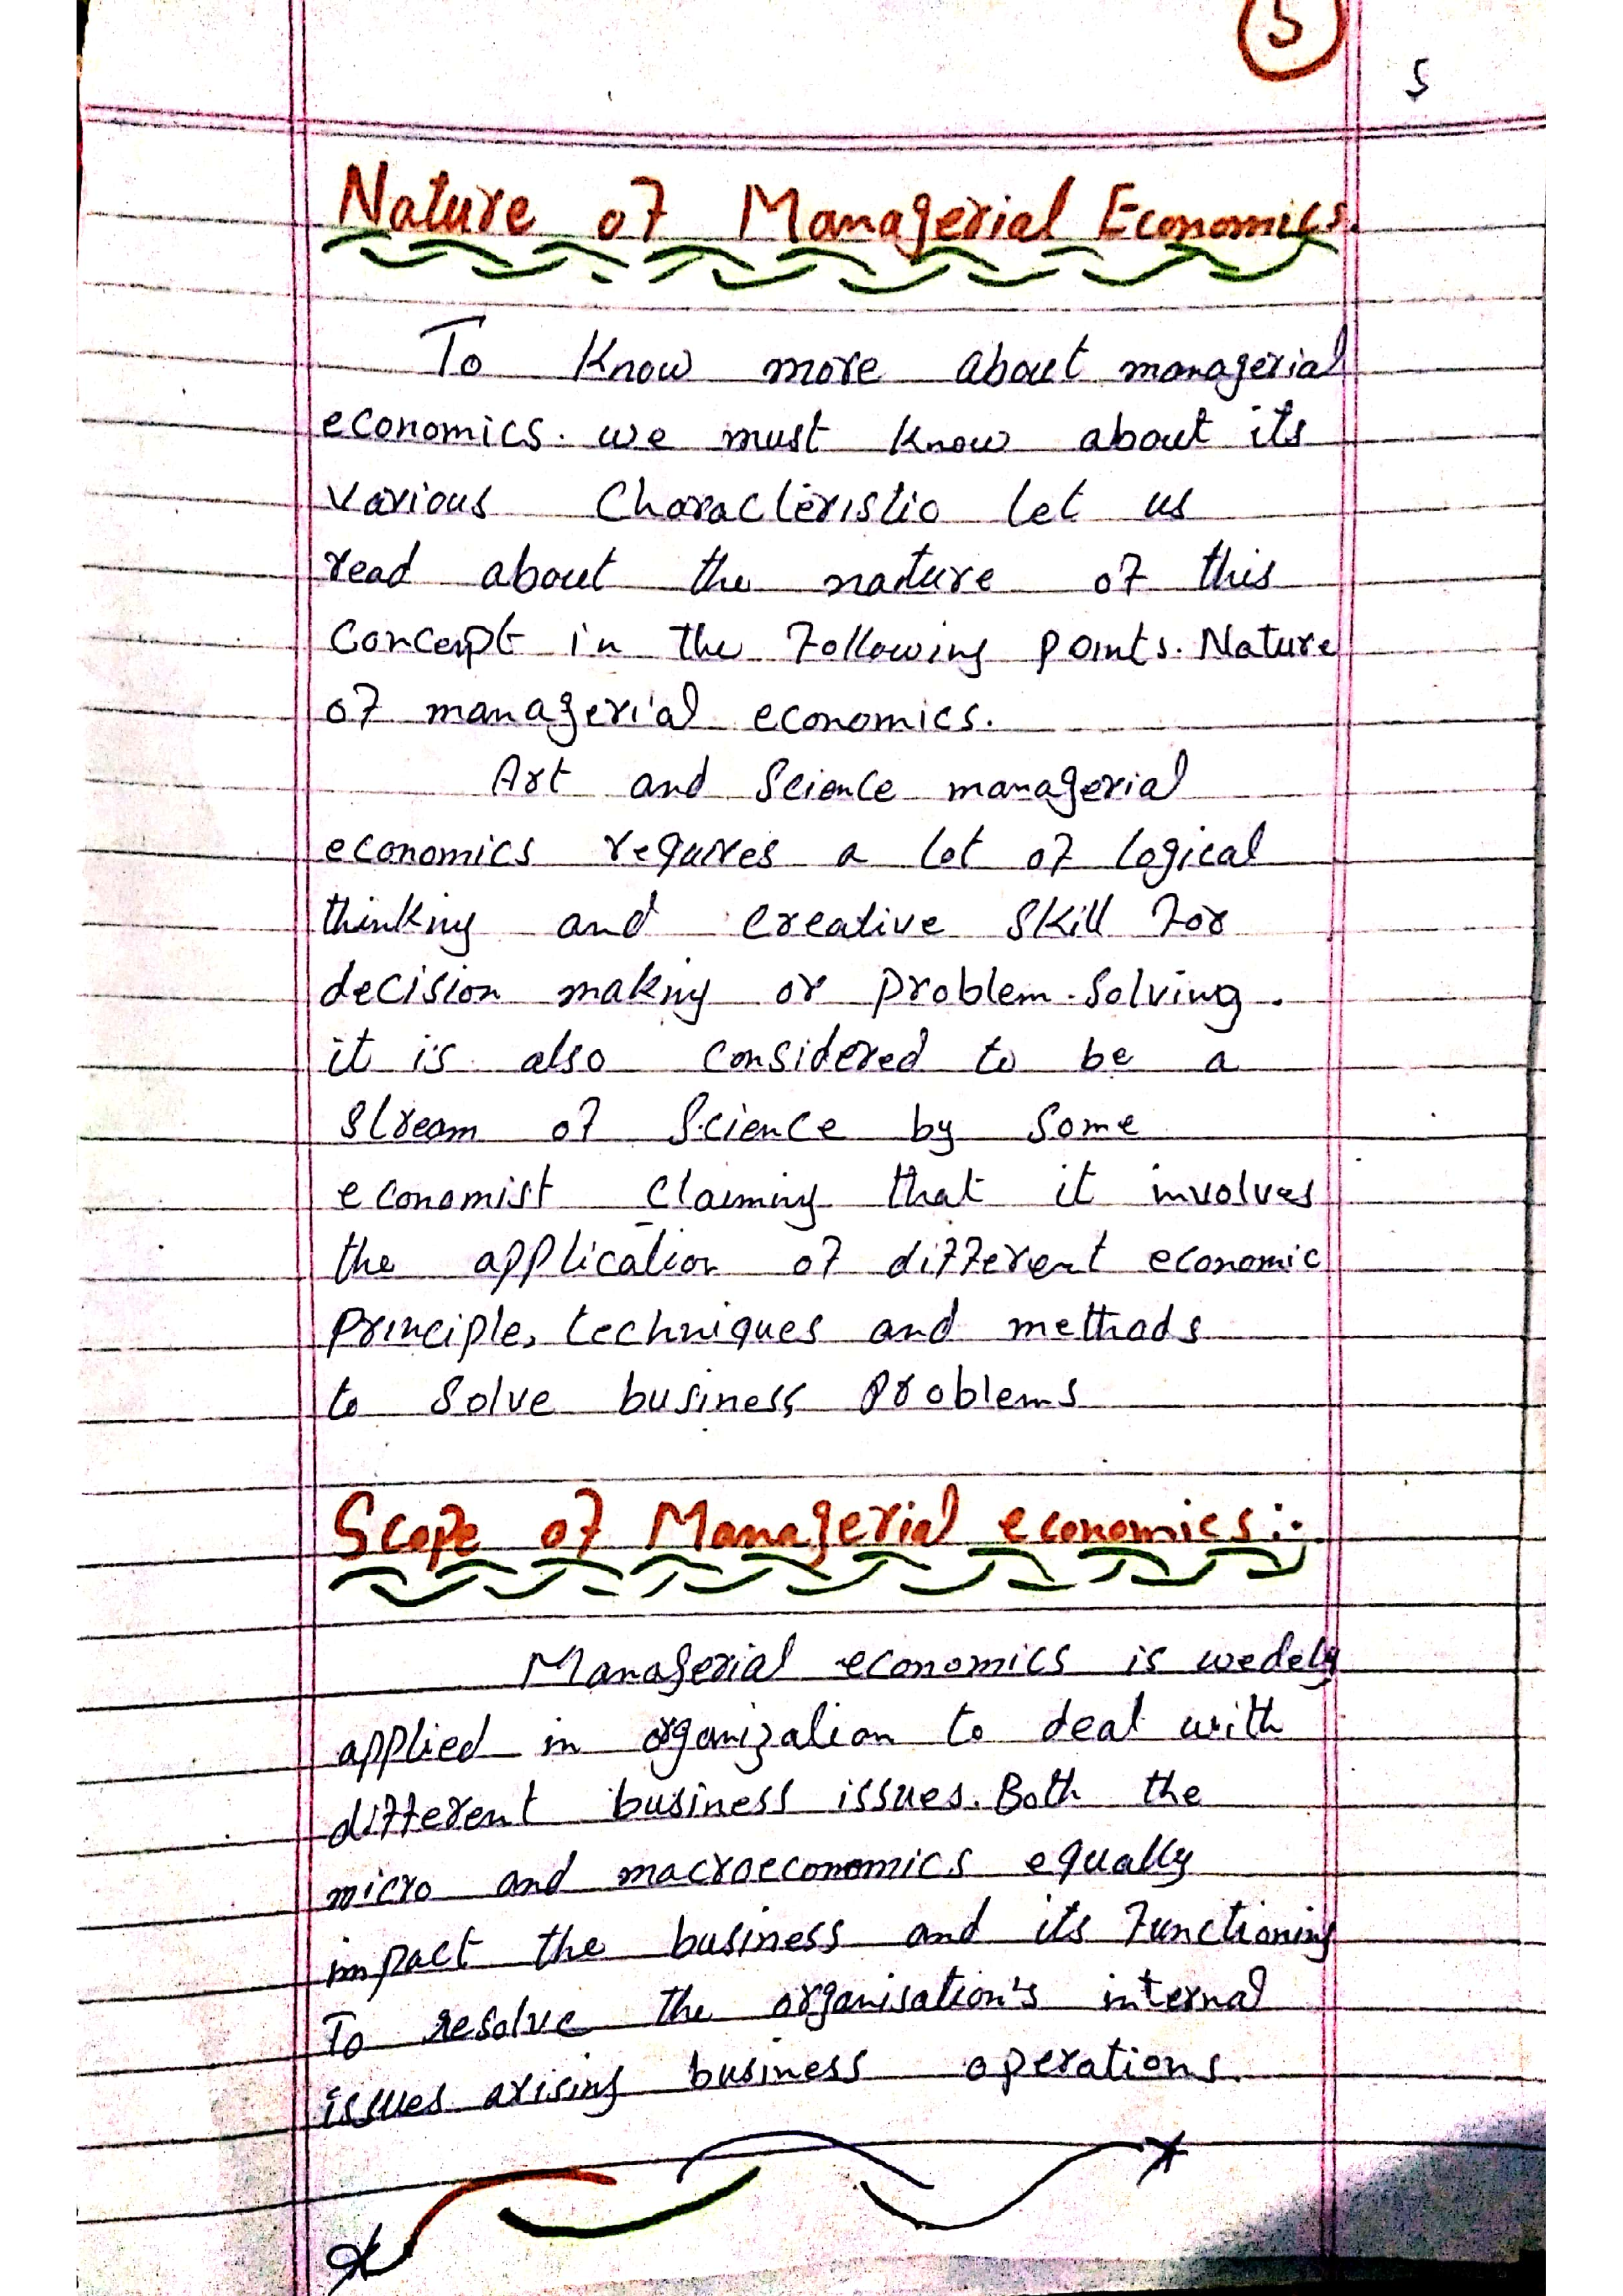 5
5
Nature of Managerial Economics.
To Know more about managerial
economics. we must know about its
various Characteristic let us
read about the nature of this
Concept in the following points. Nature
of managerial economics.
Art and Science managerial
economics requires a lot of logical
thinking and creative skill for
decision making or problem-solving.
it is also considered to be a
stream of Science by some
economist claiming that it involves
the application of different economic
principle, techniques and methods
to solve business problems
Scope of Managerial economics:-
Managerial economics is wedely
applied in organization to deal with
different business issues. Both the
micro and macroeconomics equally
impact the business and its functioning
To resolve the organisation's internal
issues arising business operations.